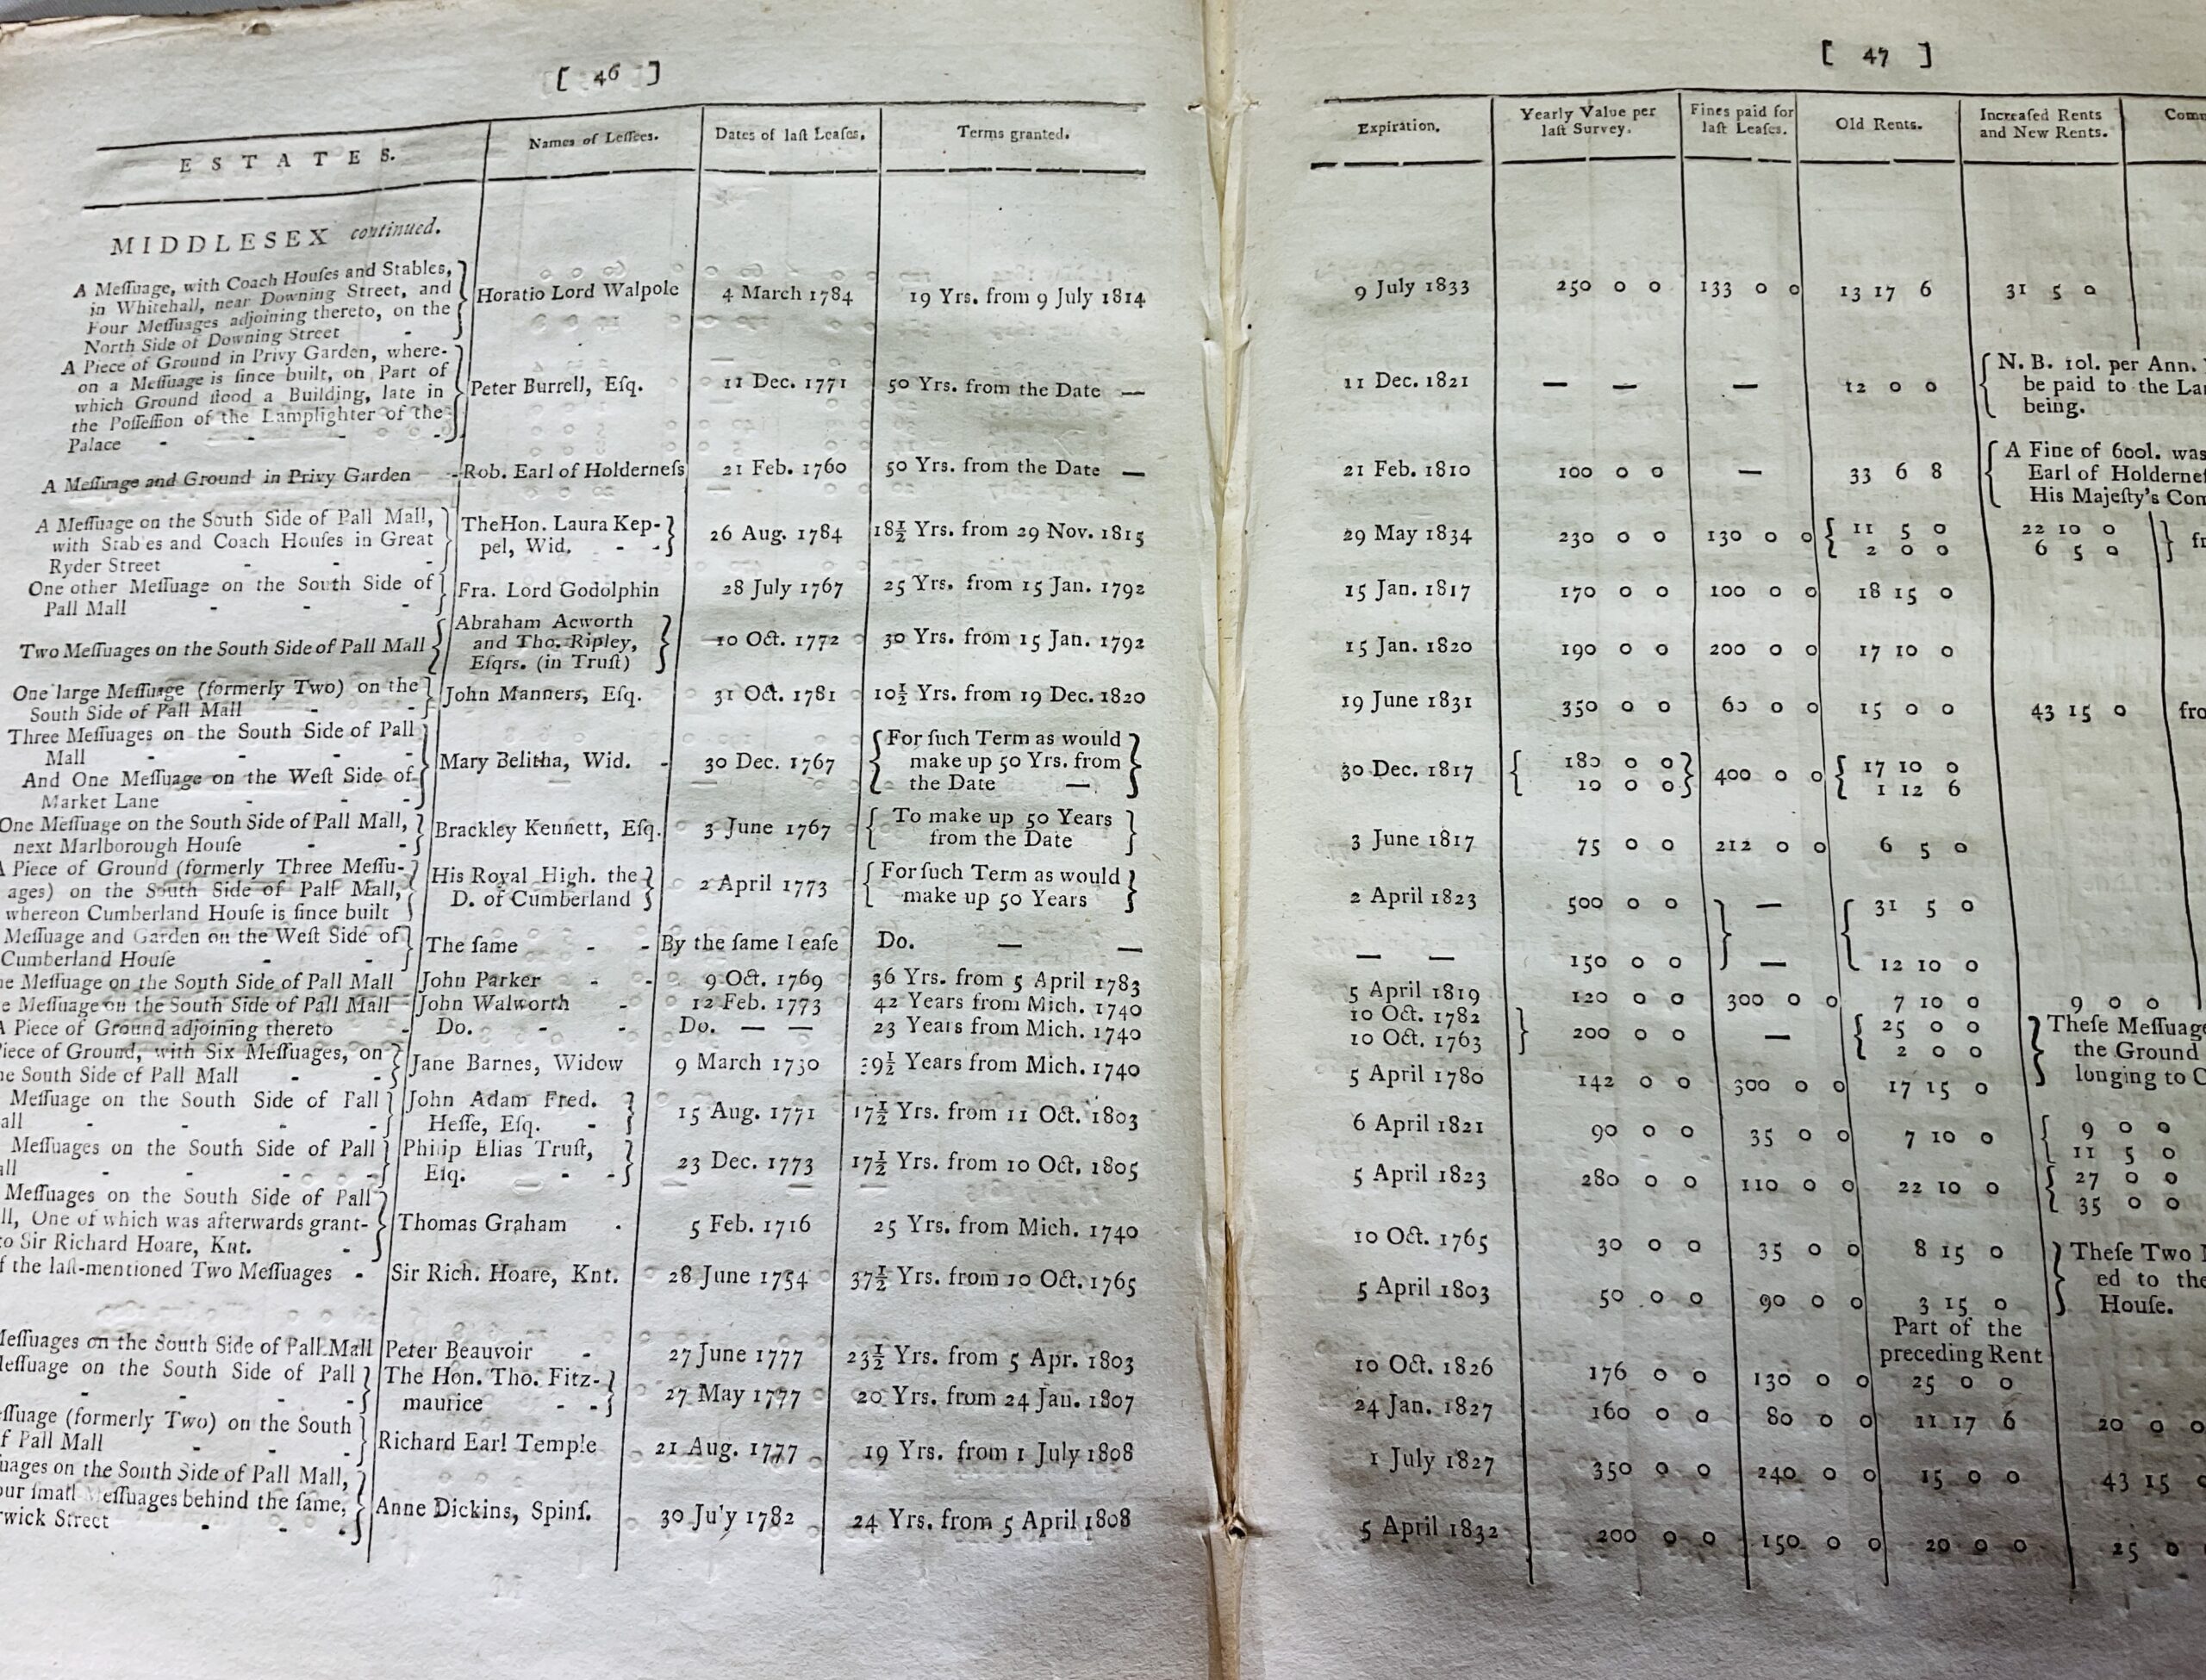 [ 46 ]
ESTATES.
Names of Leſſees.
Dates of laſt Leaſes.
Terms granted.
MIDDLESEX continued.
A Meſſuage, with Coach Houſes and Stables,
in Whitehall, near Downing Street, and
Four Meſſuages adjoining thereto, on the
North Side of Downing Street -
Horatio Lord Walpole
4 March 1784
19 Yrs. from 9 July 1814
A Piece of Ground in Privy Garden, where-
on a Meſſuage is ſince built, on Part of
which Ground ſtood a Building, late in
the Poſſeſſion of the Lamplighter of the
Palace - - - -
Peter Burrell, Eſq.
11 Dec. 1771
50 Yrs. from the Date —
A Meſſuage and Ground in Privy Garden -
Rob. Earl of Holderneſs
21 Feb. 1760
50 Yrs. from the Date —
A Meſſuage on the South Side of Pall Mall,
with Stab es and Coach Houſes in Great
Ryder Street - - -
The Hon. Laura Kep-
pel, Wid. - -
26 Aug. 1784
18½ Yrs. from 29 Nov. 1815
One other Meſſuage on the South Side of
Pall Mall - - -
Fra. Lord Godolphin
28 July 1767
25 Yrs. from 15 Jan. 1792
Two Meſſuages on the South Side of Pall Mall
Abraham Acworth
and Tho. Ripley,
Eſqrs. (in Truſt)
10 Oct. 1772
30 Yrs. from 15 Jan. 1792
One large Meſſuage (formerly Two) on the
South Side of Pall Mall - -
John Manners, Eſq.
31 Oct. 1781
10½ Yrs. from 19 Dec. 1820
Three Meſſuages on the South Side of Pall
Mall - - - -
And One Meſſuage on the Weſt Side of
Market Lane - -
Mary Belitha, Wid. -
30 Dec. 1767
For ſuch Term as would
make up 50 Yrs. from
the Date —
One Meſſuage on the South Side of Pall Mall,
next Marlborough Houſe - -
Brackley Kennett, Eſq.
3 June 1767
To make up 50 Years
from the Date
A Piece of Ground (formerly Three Meſſu-
ages) on the South Side of Pall Mall,
whereon Cumberland Houſe is ſince built
His Royal High. the
D. of Cumberland
2 April 1773
For ſuch Term as would
make up 50 Years
Meſſuage and Garden on the Weſt Side of
Cumberland Houſe - -
The ſame - -
By the ſame Leaſe
Do. — —
ne Meſſuage on the South Side of Pall Mall
John Parker - -
9 Oct. 1769
36 Yrs. from 5 April 1783
e Meſſuage on the South Side of Pall Mall
John Walworth -
12 Feb. 1773
42 Years from Mich. 1740
A Piece of Ground adjoining thereto -
Do. - -
Do. — —
23 Years from Mich. 1740
Piece of Ground, with Six Meſſuages, on
he South Side of Pall Mall - -
Jane Barnes, Widow
9 March 1730
39½ Years from Mich. 1740
Meſſuage on the South Side of Pall
all - - - -
John Adam Fred.
Heſſe, Eſq. -
15 Aug. 1771
17½ Yrs. from 11 Oct. 1803
Meſſuages on the South Side of Pall
all - - - -
Philip Elias Truſt,
Eſq. - -
23 Dec. 1773
17½ Yrs. from 10 Oct. 1805
Meſſuages on the South Side of Pall
ll, One of which was afterwards grant-
to Sir Richard Hoare, Knt. -
Thomas Graham -
5 Feb. 1716
25 Yrs. from Mich. 1740
f the laſt-mentioned Two Meſſuages -
Sir Rich. Hoare, Knt.
28 June 1754
37½ Yrs. from 10 Oct. 1765
Meſſuages on the South Side of Pall Mall
Peter Beauvoir -
27 June 1777
23½ Yrs. from 5 Apr. 1803
Meſſuage on the South Side of Pall
- - -
The Hon. Tho. Fitz-
maurice - -
27 May 1777
20 Yrs. from 24 Jan. 1807
eſſuage (formerly Two) on the South
f Pall Mall - - -
Richard Earl Temple
21 Aug. 1777
19 Yrs. from 1 July 1808
uages on the South Side of Pall Mall,
our ſmall Meſſuages behind the ſame,
rwick Street - - -
Anne Dickins, Spinſ.
30 Ju'y 1782
24 Yrs. from 5 April 1808
[ 47 ]
Expiration.
Yearly Value per
laſt Survey.
Fines paid for
laſt Leaſes.
Old Rents.
Increaſed Rents
and New Rents.
Comm
9 July 1833 250 0 0 133 0 0 13 17 6 31 5 0
11 Dec. 1821 — — — 12 0 0
N. B. 10l. per Ann.
be paid to the La
being.
21 Feb. 1810 100 0 0 — 33 6 8
A Fine of 600l. was
Earl of Holderneſ
His Majeſty's Com
29 May 1834 230 0 0 130 0 0 11 5 0 22 10 0
2 0 0 6 5 0 fr
15 Jan. 1817 170 0 0 100 0 0 18 15 0
15 Jan. 1820 190 0 0 200 0 0 17 10 0
19 June 1831 350 0 0 60 0 0 15 0 0 43 15 0 fro
30 Dec. 1817 180 0 0 400 0 0 17 10 0
10 0 0 1 12 6
3 June 1817 75 0 0 212 0 0 6 5 0
2 April 1823 500 0 0 — 31 5 0
— — 150 0 0 — 12 10 0
5 April 1819 120 0 0 300 0 0 7 10 0 9 0 0
10 Oct. 1782 200 0 0 — 25 0 0
10 Oct. 1763 2 0 0
Theſe Meſſuage
the Ground
longing to C
5 April 1780 142 0 0 300 0 0 17 15 0
6 April 1821 90 0 0 35 0 0 7 10 0 9 0 0
11 5 0
5 April 1823 280 0 0 110 0 0 22 10 0 27 0 0
35 0 0
10 Oct. 1765 30 0 0 35 0 0 8 15 0
Theſe Two
ed to the
Houſe.
5 April 1803 50 0 0 90 0 0 3 15 0
Part of the
preceding Rent
10 Oct. 1826 176 0 0 130 0 0 25 0 0
24 Jan. 1827 160 0 0 80 0 0 11 17 6 20 0 0
1 July 1827 350 0 0 240 0 0 15 0 0 43 15 0
5 April 1832 200 0 0 150 0 0 20 0 0 25 0